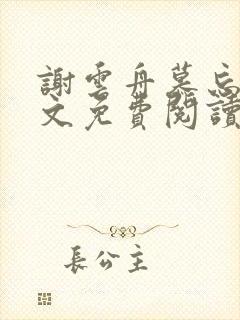 謝雲舟慕忘
文免費閱讀
長公主